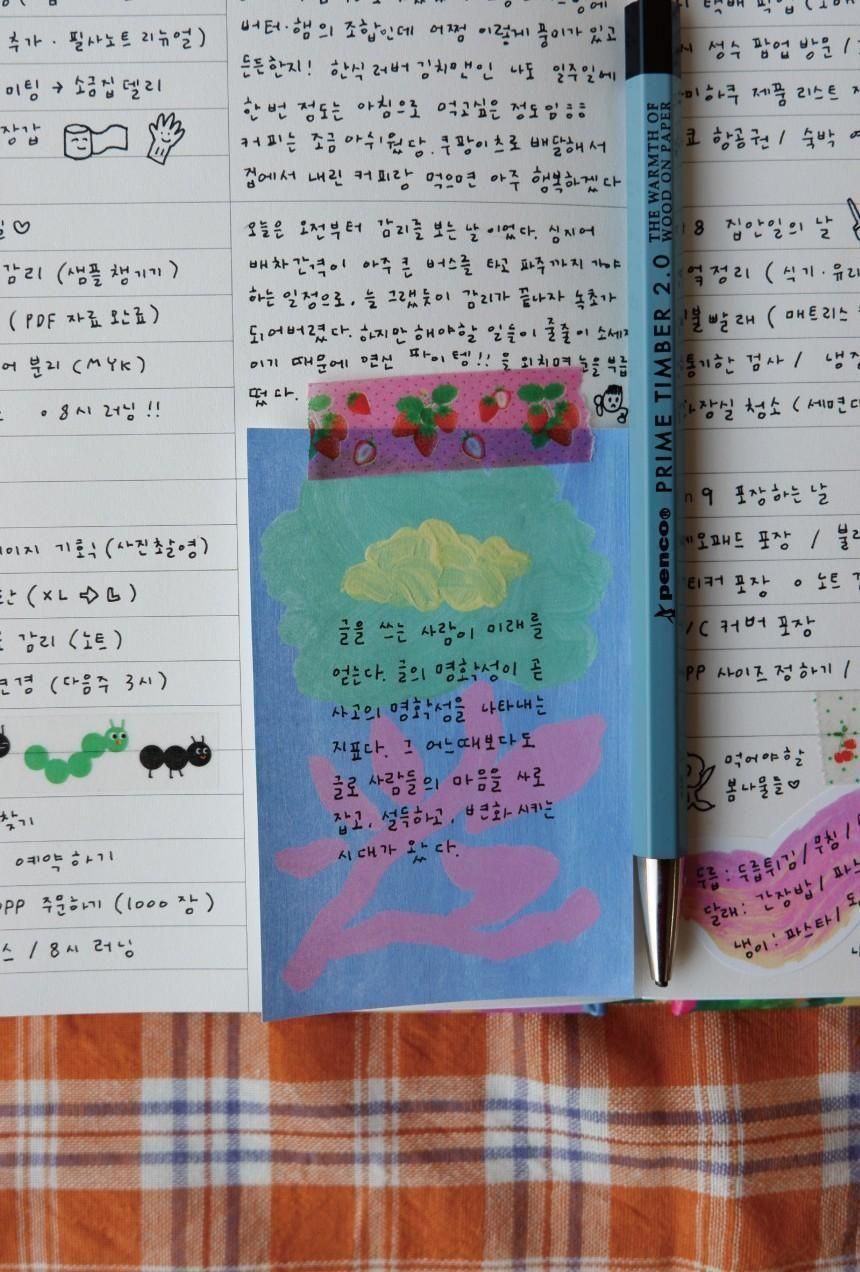 추가 · 필사노트 리뉴얼)
미팅 → 소금집델리
장갑
♡
감리 (샘플 챙기기)
(PDF 자료 완료)
분리 (MYK)
∘ 8시 러닝!!
기획 (사진촬영)
(XL ⇨ L)
감리 (노트)
변경 (다음주 3시)
찾기
예약하기
OPP 주문하기 (1000장)
/ 8시 러닝
버터·햄의 조합인데 어쩜 이렇게 풍미가 있고
든든한지! 한식러버 김치맨인 나도 일주일에
한 번 정도는 아침으로 먹고싶은 정도임ㅎㅎ
커피는 조금 아쉬웠담. 쿠팡이츠로 배달해서
집에서 내린 커피랑 먹으면 아주 행복하겠다
오늘은 오전부터 감리를 보는 날이었다. 심지어
배차간격이 아주 큰 버스를 타고 파주까지 가야
하는 일정으로, 늘 그랬듯이 감리가 끝나자 녹초가
되어버렸다. 하지만 해야할 일들이 줄줄이 소세지
이기 때문에 변신 파이템!! 을 외치며 눈을 부릅
떴다.
글을 쓰는 사람이 미래를
얻는다. 글의 명확성이 곧
사고의 명확성을 나타내는
지표다. 그 어느때보다도
글로 사람들의 마음을 사로
잡고, 설득하고, 변화시키는
시대가 왔다.
penco® PRIME TIMBER 2.0 THE WARMTH OF
WOOD ON PAPER
성수 팝업 방문 /
제품 리스트
항공권 / 숙박
8 집안일의 날
정리 (식기·유리
이불빨래 (매트리스
검사 / 냉장
화장실 청소 (세면대
9 포장하는 날
포장 /
스티커 포장 ∘ 노트
/C 커버 포장
OPP 사이즈 정하기 /
먹어야 할
봄나물들♡
두릅 : 두릅튀김 / 무침 /
달래 : 간장밥 /
냉이 : 파스타 /